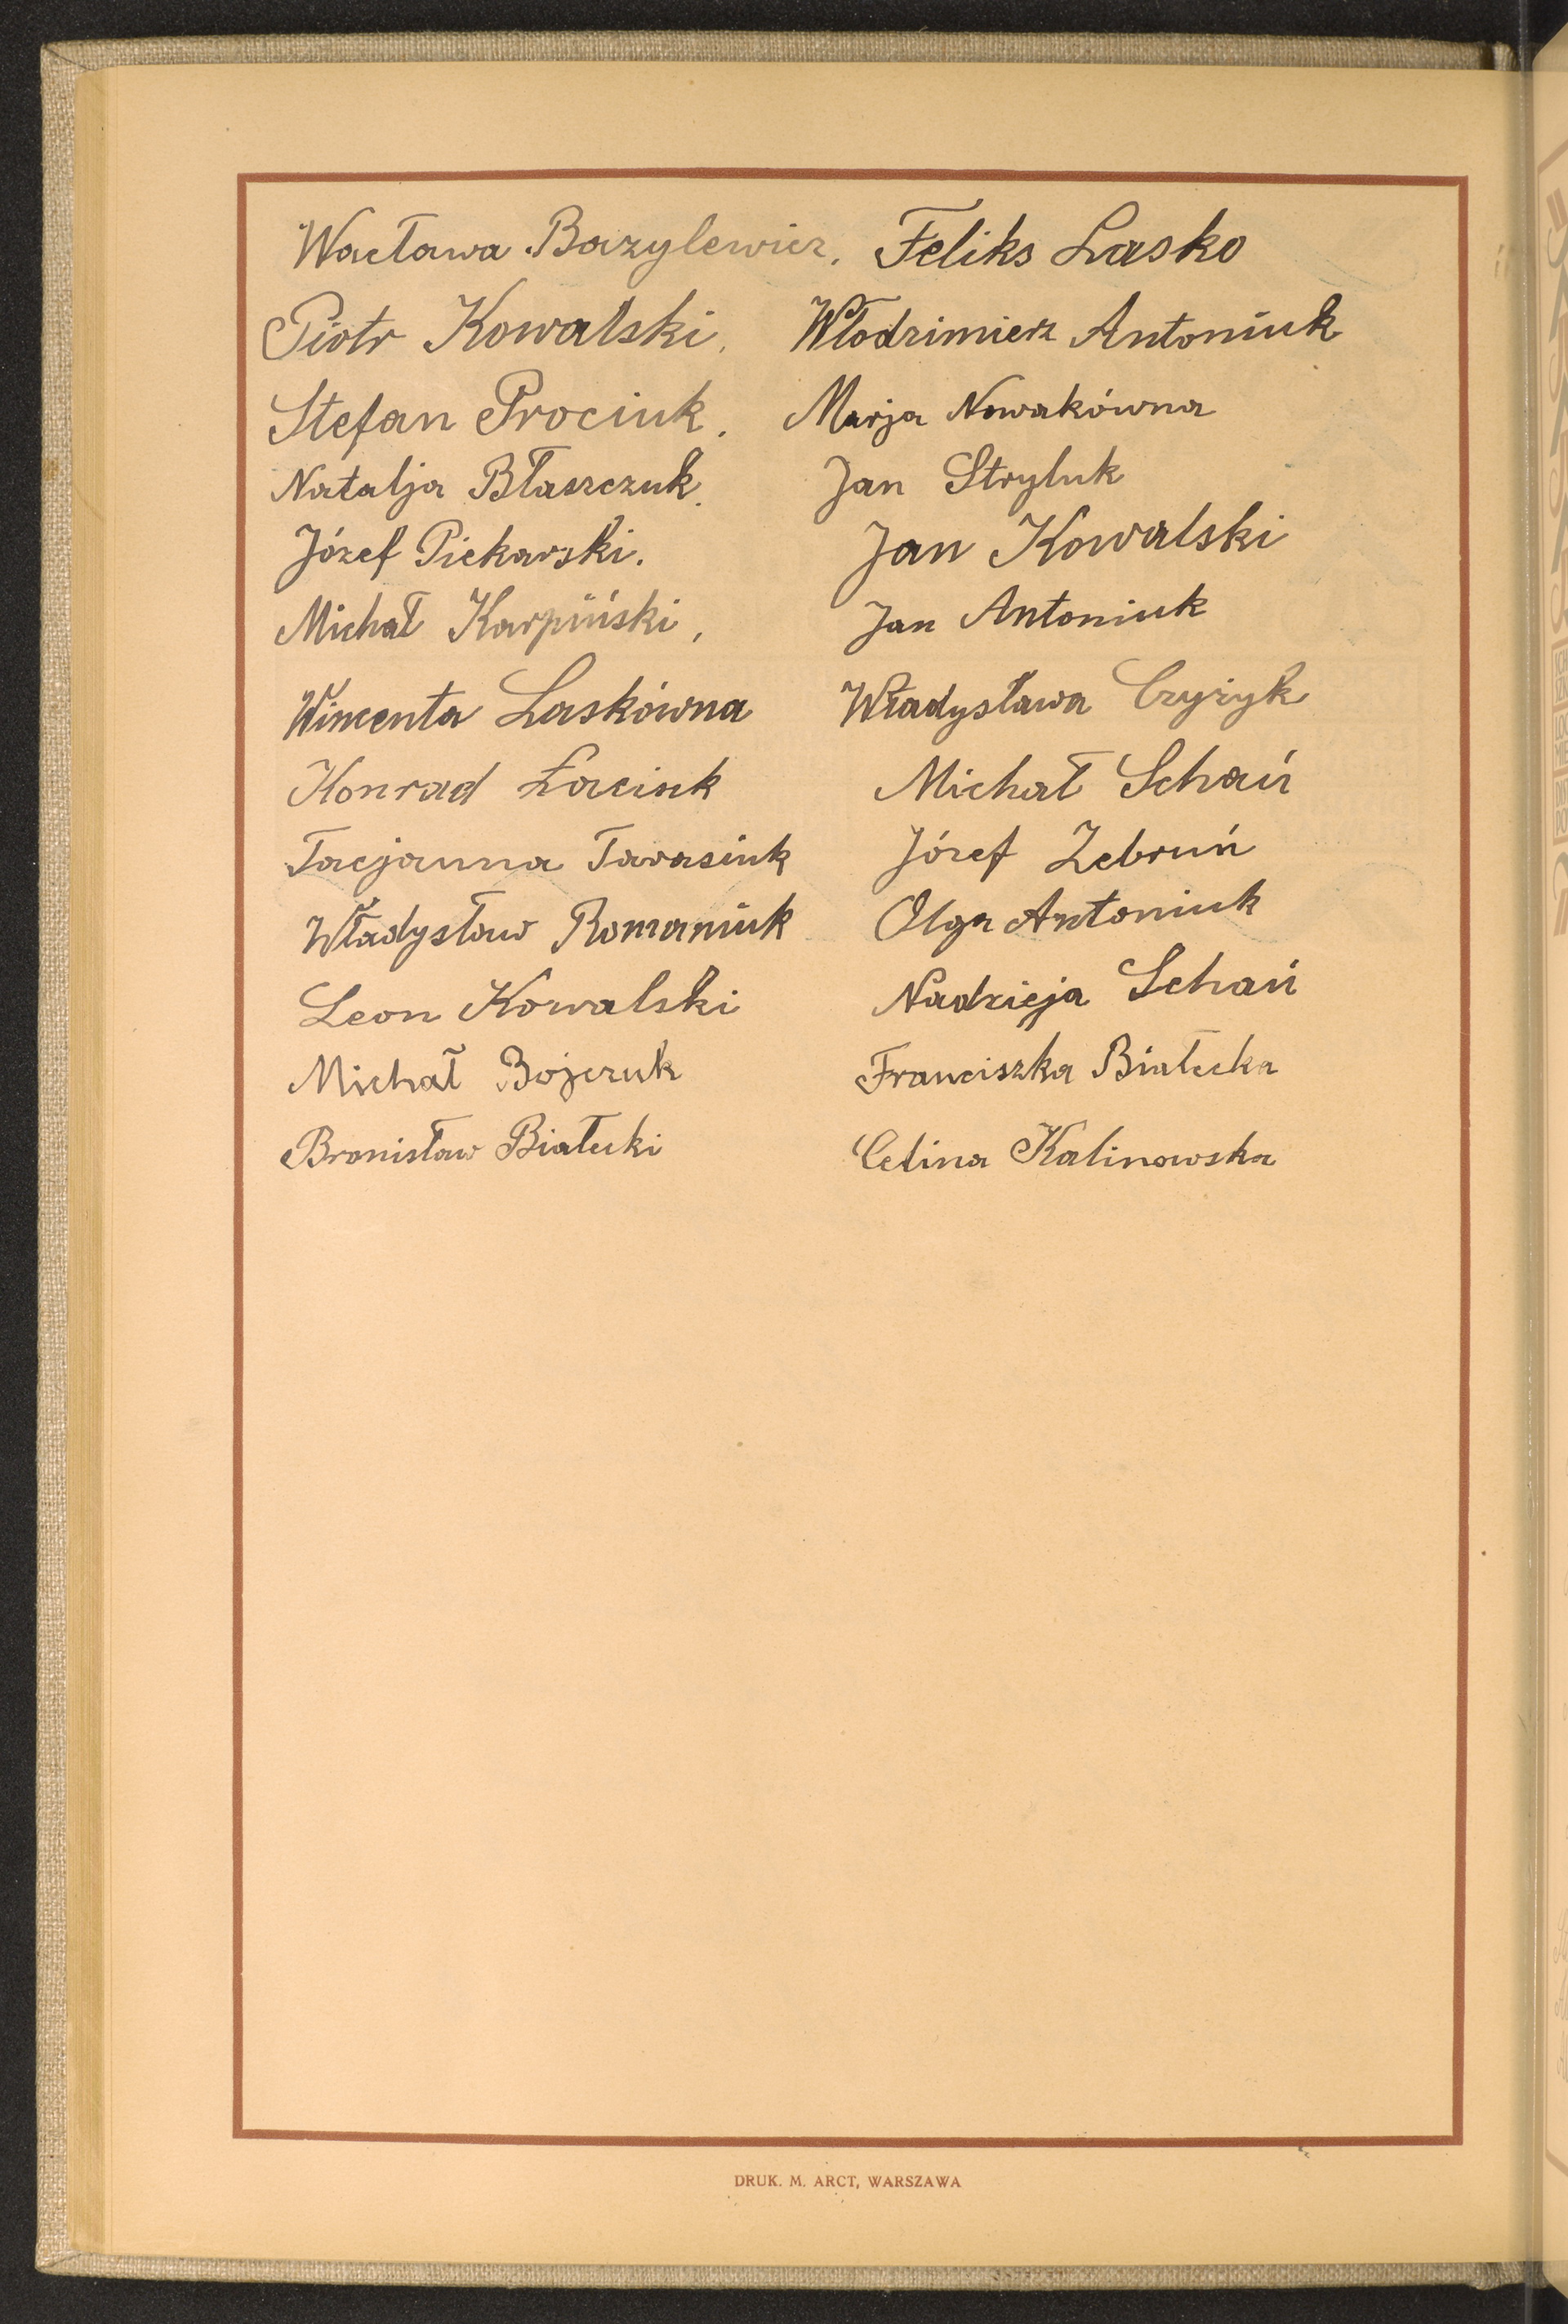 Wacława Bazylewicz. Feliks Lasko
Piotr Kowalski. Włodzimierz Antoniuk
Stefan Prociuk. Marja Nowakówna
Natalja Błaszczuk. Jan Stryluk
Józef Piekarski. Jan Kowalski
Michał Karpiński, Jan Antoniuk
Wincenta Laskówna Władysława Czyżyk
Konrad Łaciuk Michał Schań
Tacjanna Tarasiuk Józef Zebruń
Władysław Romaniuk Olga Antoniuk
Leon Kowalski Nadzieja Schań
Michał Bojczuk Franciszka Białecka
Bronisław Białecki Celina Kalinowska
DRUK. M. ARCT, WARSZAWA